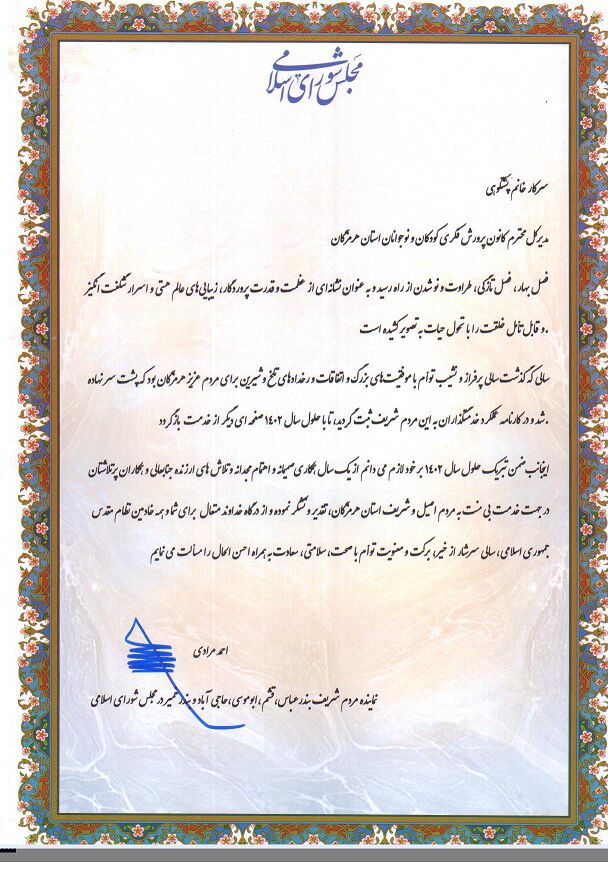 مجلس شورای اسلامی
سرکار خانم پشتکوهی
مدیرکل محترم کانون پرورش فکری کودکان و نوجوانان استان هرمزگان
فصل بهار، فصل تازگی، طراوت و نو شدن از راه رسید و به عنوان نشانه‌ای از عظمت و قدرت پروردگار، زیبایی‌های عالم هستی و اسرار شگفت انگیز
و قابل تأمل خلقت را با تحول حیات به تصویر کشیده است.
سالی که گذشت سالی پرفراز و نشیب توأم با موفقیت‌های بزرگ و اتفاقات و رخدادهای تلخ و شیرین برای مردم عزیز هرمزگان بود که پشت سر نهاده
شد و در کارنامه عملکرد خدمتگذاران به این مردم شریف ثبت گردید، تا با حلول سال ۱۴۰۲ صفحه ای دیگر از خدمت باز گردد.
اینجانب ضمن تبریک حلول سال ۱۴۰۲ بر خود لازم می دانم از یک سال همکاری صمیمانه و اهتمام مجدانه و تلاش های ارزنده جنابعالی و همکاران پرتلاشتان
در جهت خدمت بی منت به مردم اصیل و شریف استان هرمزگان، تقدیر و تشکر نموده و از درگاه خداوند متعال برای شما و همه خادمین نظام مقدس
جمهوری اسلامی، سالی سرشار از خیر، برکت و معنویت توأم با صحت، سلامتی، سعادت به همراه احسن الحال را مسألت می نمایم
احمد مرادی
نماینده مردم شریف بندرعباس، قشم، ابوموسی، حاجی آباد و بندر خمیر در مجلس شورای اسلامی